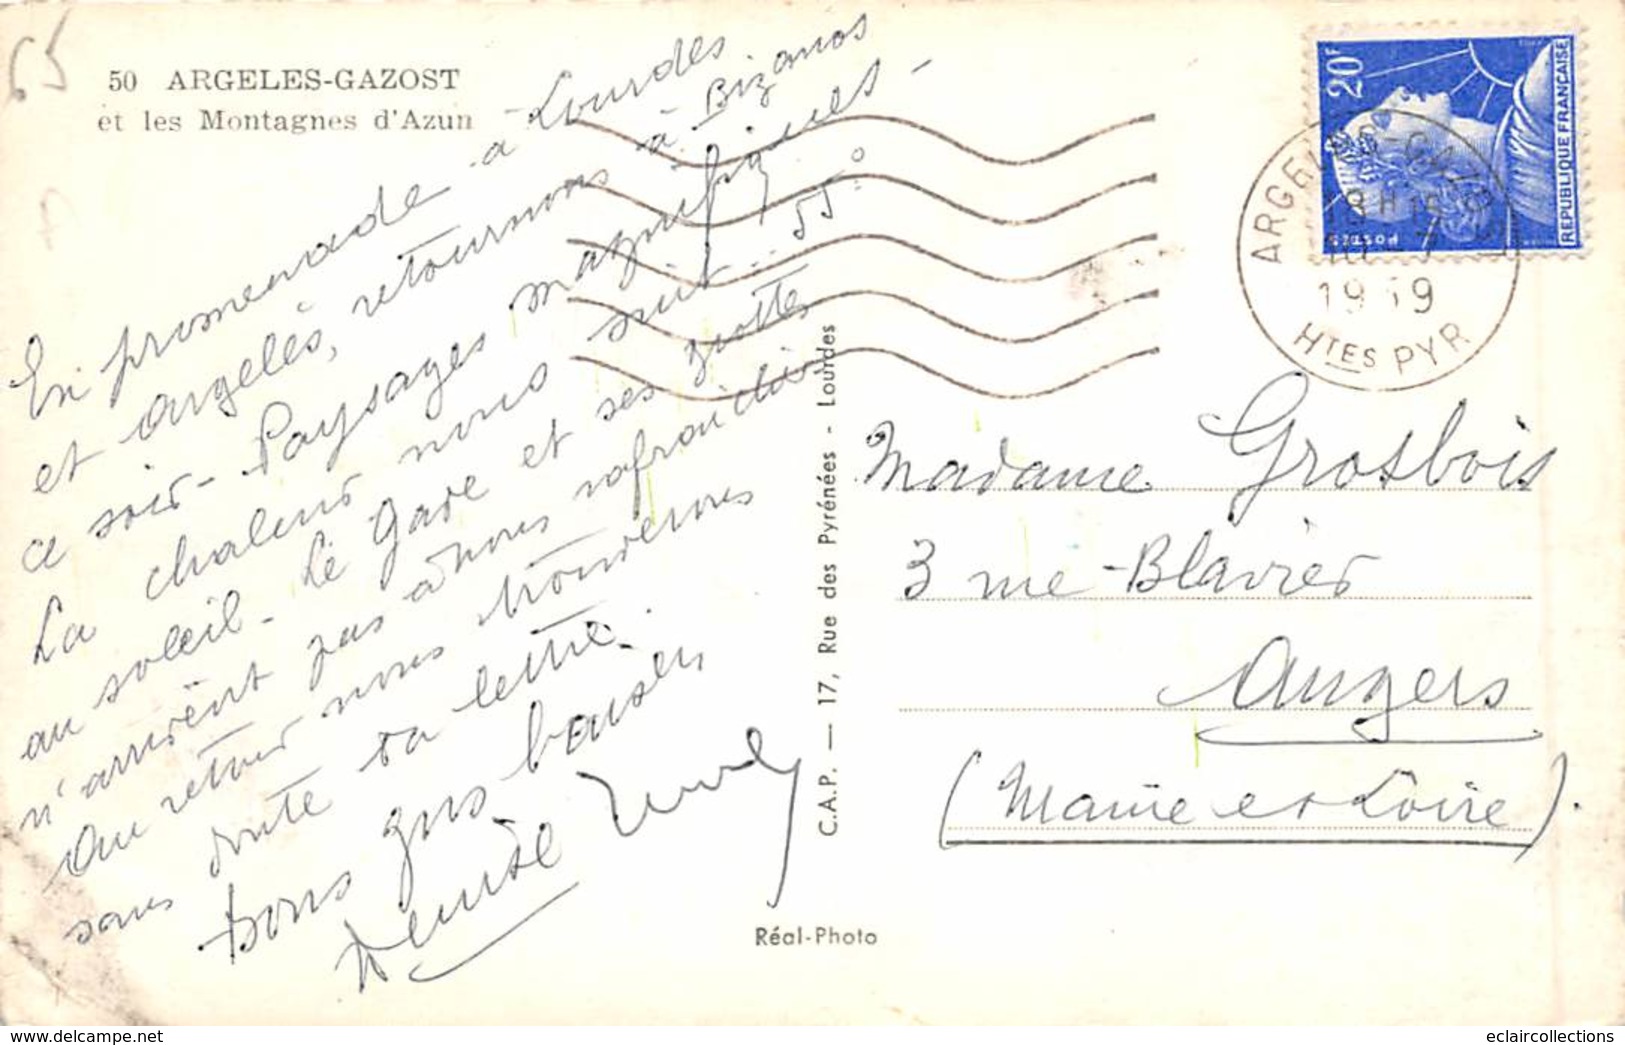 50 ARGELES-GAZOST
et les Montagnes d'Azun
55
En promenade à Lourdes
et Argelès, retournons à Bizanos
ce soir - Paysages magnifiques -
La chaleur nous suit - 55°
au soleil - Le Gave et ses grottes
n'arrivent pas à nous rafraichir
Au retour nous trouverons
sans doute ta lettre.
Bons gros baisers
Denise
C.A.P. — 17, Rue des Pyrénées - Lourdes
Réal-Photo
20F
POSTES
REPUBLIQUE FRANÇAISE
ARGELES-GAZOST
18H15
1959
HTES PYR
Madame Grosbois
3 rue Blavier
Angers
(Maine et Loire).
eclaircollections
www.delcampe.net